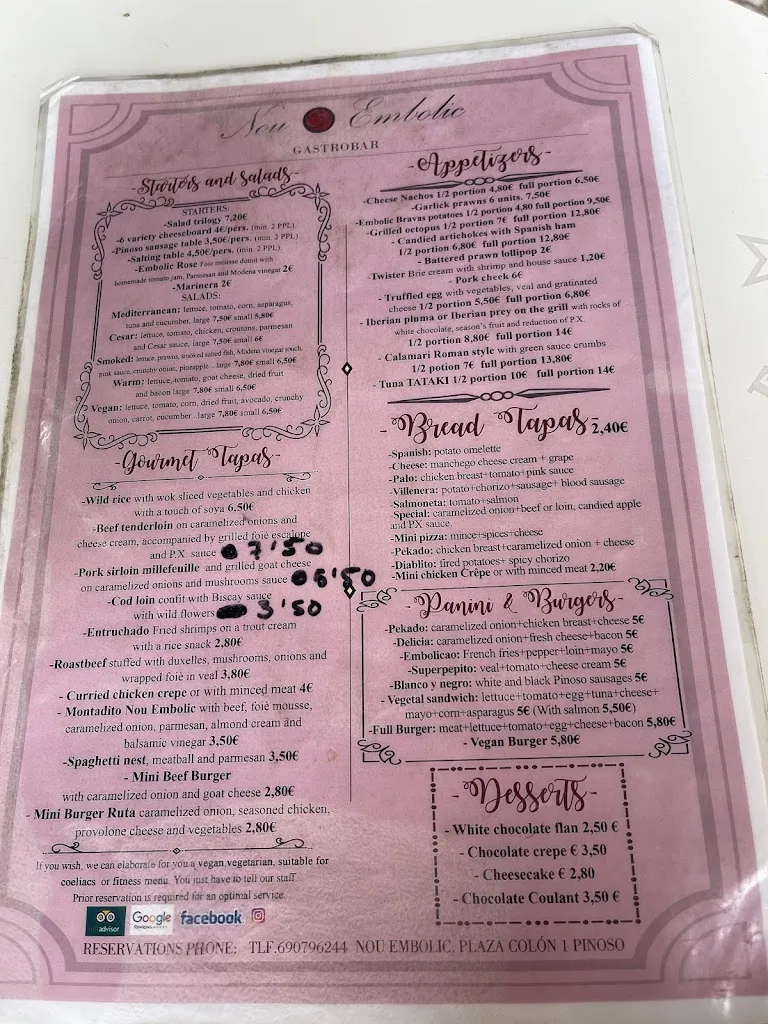 Nou Embolic
GASTROBAR
-Starters and salads-
STARTERS:
-Salad trilogy 7,20€
-6 variety cheeseboard 4€/pers. (min. 2 PPL)
-Pinoso sausage table 3,50€/pers. (min. 2 PPL)
-Salting table 4,50€/pers. (min. 2 PPL)
-Embolic Rose Foir mousse donut with
homemade tomato jam, Parmesan and Modena vinegar 2€
-Marinera 2€
SALADS:
Mediterranean: lettuce, tomato, corn, asparagus,
tuna and cucumber, large 7,50€ small 5,80€
Cesar: lettuce, tomato, chicken, croutons, parmesan
and Cesar sauce, large 7,50€ small 6€
Smoked: lettuce, prawns, smoked salted fish, Modena vinegar touch,
pink sauce, crunchy onion, pineapple .. large 7,80€ small 6,50€
Warm: lettuce, tomato, goat cheese, dried fruit
and bacon large 7,80€ small 6,50€
Vegan: lettuce, tomato, corn, dried fruit, avocado, crunchy
onion, carrot, cucumber ..large 7,80€ small 6,50€
-Gourmet Tapas-
-Wild rice with wok sliced vegetables and chicken
with a touch of soya 6,50€
-Beef tenderloin on caramelized onions and
cheese cream, accompanied by grilled foie escalope
and P.X. sauce 7'50
-Pork sirloin millefeuille and grilled goat cheese
on caramelized onions and mushrooms sauce 6'50
-Cod loin confit with Biscay sauce
with wild flowers 3'50
-Entruchado Fried shrimps on a trout cream
with a rice snack 2,80€
-Roastbeef stuffed with duxelles, mushrooms, onions and
wrapped foie in veal 3,80€
- Curried chicken crepe or with minced meat 4€
- Montadito Nou Embolic with beef, foie mousse,
caramelized onion, parmesan, almond cream and
balsamic vinegar 3,50€
-Spaghetti nest, meatball and parmesan 3,50€
- Mini Beef Burger
with caramelized onion and goat cheese 2,80€
- Mini Burger Ruta caramelized onion, seasoned chicken,
provolone cheese and vegetables 2,80€
If you wish, we can elaborate for you a vegan,vegetarian, suitable for
coeliacs or fitness menu. You just have to tell our staff.
Prior reservation is required for an optimal service.
advisor Google Reviews facebook
-Appetizers-
-Cheese Nachos 1/2 portion 4,80€ full portion 6,50€
-Garlick prawns 6 units. 7,50€
-Embolic Bravas potatoes 1/2 portion 4,80 full portion 9,50€
-Grilled octopus 1/2 portion 7€ full portion 12,80€
- Candied artichokes with Spanish ham
1/2 portion 6,80€ full portion 12,80€
- Battered prawn lollipop 2€
-Twister Brie cream with shrimp and house sauce 1,20€
- Pork cheek 6€
- Truffled egg with vegetables, veal and gratinated
cheese 1/2 portion 5,50€ full portion 6,80€
- Iberian pluma or Iberian prey on the grill with rocks of
white chocolate, season's fruit and reduction of P.X.
1/2 portion 8,80€ full portion 14€
- Calamari Roman style with green sauce crumbs
1/2 potion 7€ full portion 13,80€
- Tuna TATAKI 1/2 portion 10€ full portion 14€
-Bread Tapas- 2,40€
-Spanish: potato omelette
-Cheese: manchego cheese cream + grape
-Palo: chicken breast+tomato+pink sauce
-Villenera: potato+chorizo+sausage+ blood sausage
-Salmoneta: tomato+salmon
Special: caramelized onion+beef or loin, candied apple
and PX sauce.
-Mini pizza: mince+spices+cheese
-Pekado: chicken breast+caramelized onion + cheese
-Diablito: fired potatoes+ spicy chorizo
-Mini chicken Crêpe or with minced meat 2,20€
-Panini & Burgers-
-Pekado: caramelized onion+chicken breast+cheese 5€
-Delicia: caramelized onion+fresh cheese+bacon 5€
-Embolicao: French fries+pepper+loin+mayo 5€
-Superpepito: veal+tomato+cheese cream 5€
-Blanco y negro: white and black Pinoso sausages 5€
- Vegetal sandwich: lettuce+tomato+egg+tuna+cheese+
mayo+corn+asparagus 5€ (With salmon 5,50€)
-Full Burger: meat+lettuce+tomato+egg+cheese+bacon 5,80€
- Vegan Burger 5,80€
-Desserts-
- White chocolate flan 2,50 €
- Chocolate crepe € 3,50
- Cheesecake € 2,80
- Chocolate Coulant 3,50 €
RESERVATIONS PHONE: TLF.690796244 NOU EMBOLIC. PLAZA COLÓN 1 PINOSO